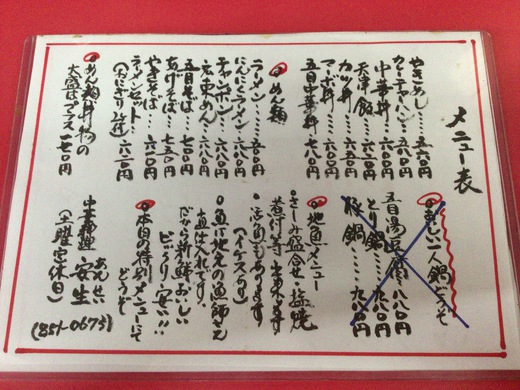 メニュー表
やきめし……五六〇円
カレーチャーハン……五八〇円
中華丼……六三〇円
天津飯……六三〇円
カツ丼……六五〇円
マーボ丼……六八〇円
五目中華丼……七八〇円
めん類
ラーメン……五〇〇円
にんにくラーメン……五八〇円
チャンポン……六八〇円
広東めん……六八〇円
五目そば……七五〇円
あげそば……七五〇円
やきそば……六〇〇円
ラーメンセット……六三〇円
(おにぎり付)
めん類丼物の
大盛はプラス一七〇円
おいしい一人鍋どうぞ
五目湯豆腐……八八〇円
とり鍋……九八〇円
豚鍋……九八〇円
地魚メニュー
さしみ盛合せ・塩焼
煮付等出来ます
活魚もあります
(イケスあり)
魚は地元の漁師さん
直入れです。
だから新鮮おいしい
びっくり安い!!
本日の特別メニューにて
どうぞ
中華料理 安生
あんせい
(土曜定休日)
(851-0673)